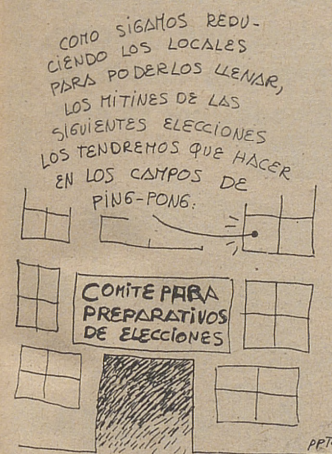 COMO SIGAMOS REDU-
CIENDO LOS LOCALES
PARA PODERLOS LLENAR,
LOS MITINES DE LAS
SIGUIENTES ELECCIONES
LOS TENDREMOS QUE HACER
EN LOS CAMPOS DE
PING-PONG.
COMITE PARA
PREPARATIVOS
DE ELECCIONES